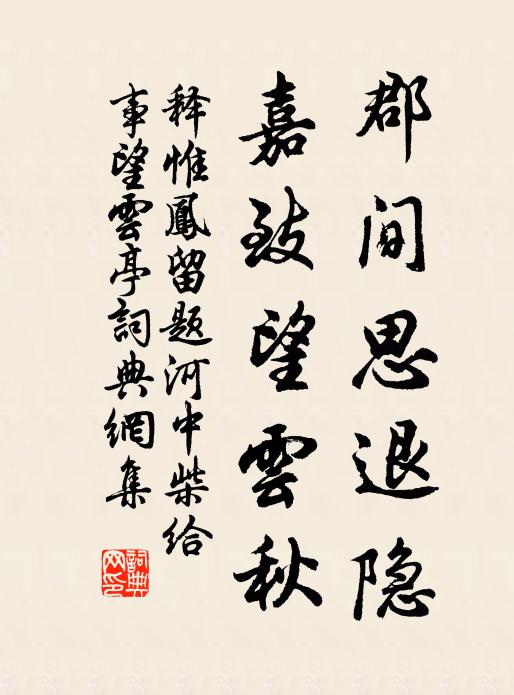 郡间思退隐
嘉致望雲秋
释惟鳳留题河中柴给
事望雲亭詞典網集
詞典網印